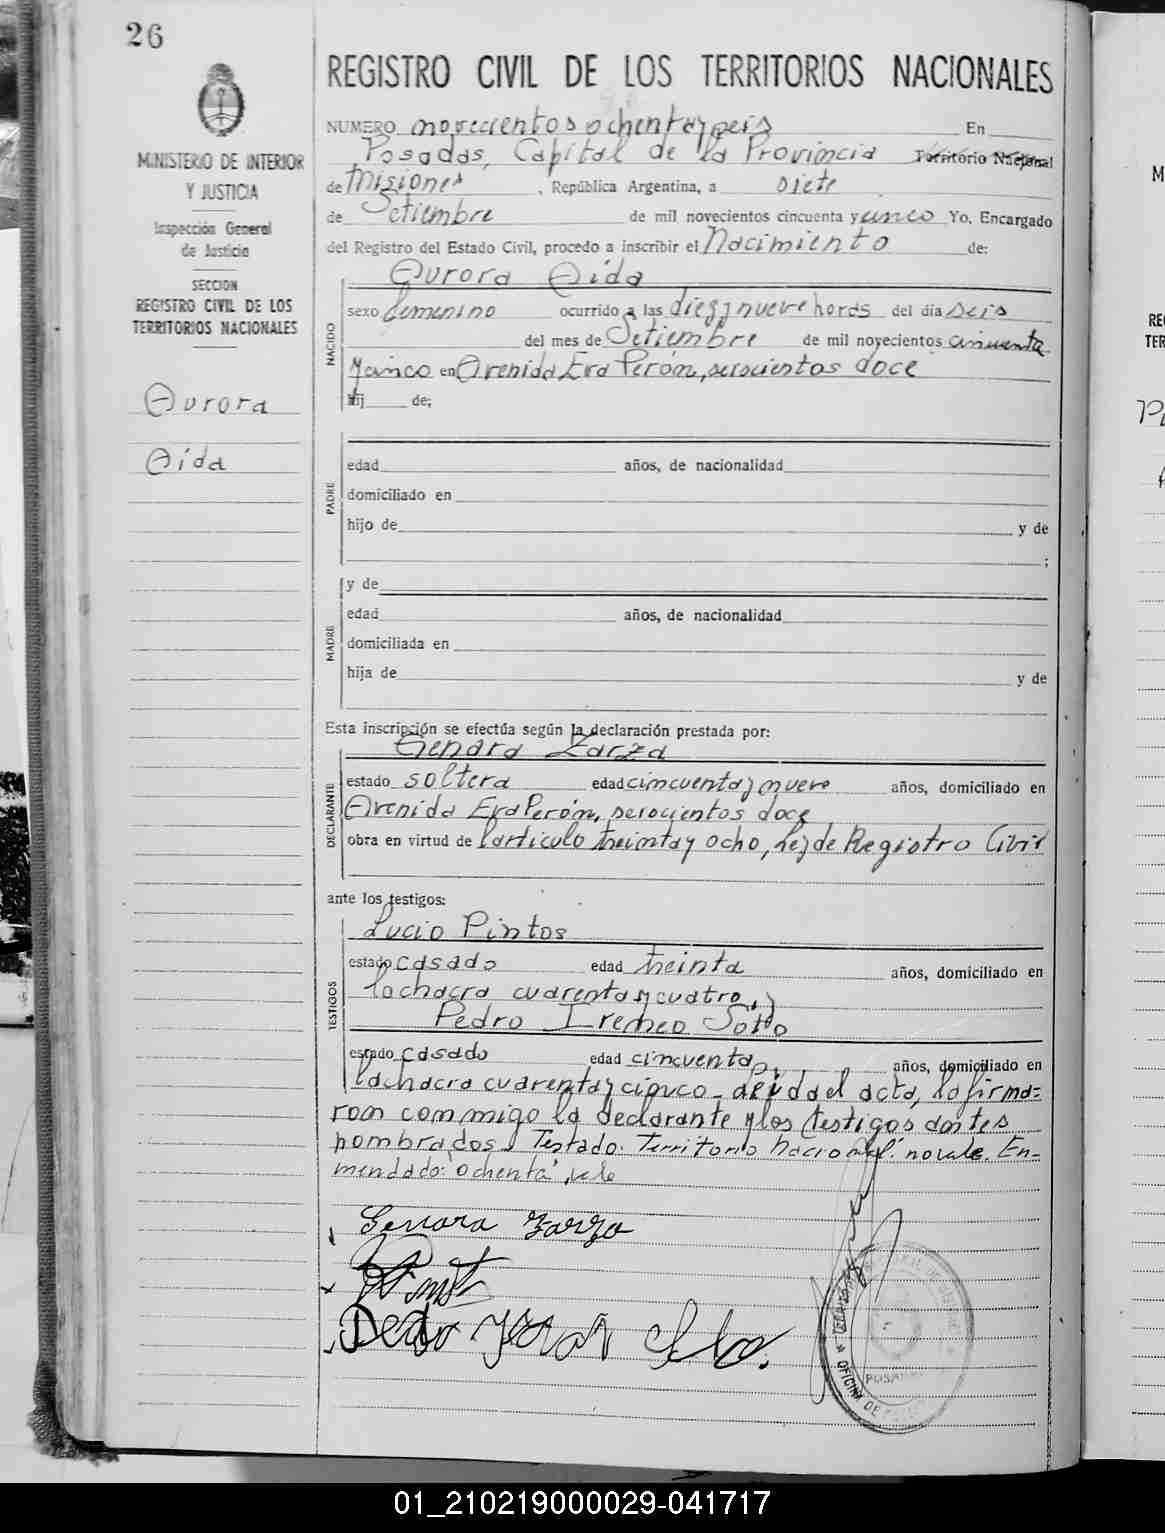 26
REGISTRO CIVIL DE LOS TERRITORIOS NACIONALES
MINISTERIO DE INTERIOR
Y JUSTICIA
Inspección General
de Justicia
SECCION
REGISTRO CIVIL DE LOS
TERRITORIOS NACIONALES
Aurora
Aida
NUMERO novecientos ochenta y seis En
Posadas, Capital de la Provincia Territorio Nacional
de Misiones, República Argentina, a siete
de Setiembre de mil novecientos cincuenta y cinco Yo, Encargado
del Registro del Estado Civil, procedo a inscribir el Nacimiento de:
NACIDO
Aurora Aida
sexo femenino ocurrido a las diez y nueve horas del día seis
del mes de Setiembre de mil novecientos cincuenta
y cinco en Avenida Eva Perón, seiscientos doce
hij de;
PADRE
edad años, de nacionalidad
domiciliado en
hijo de y de
;
MADRE
y de
edad años, de nacionalidad
domiciliada en
hija de y de
Esta inscripción se efectúa según la declaración prestada por:
DECLARANTE
Genara Zarza
estado soltera edad cincuenta y nueve años, domiciliado en
Avenida Eva Perón, seiscientos doce
obra en virtud de l artículo treinta y ocho, Ley de Registro Civil
ante los testigos:
TESTIGOS
Lucio Pintos
estado casado edad treinta años, domiciliado en
la chacra cuarenta y cuatro, y
Pedro Ireneo Soto
estado casado edad cincuenta, años, domiciliado en
la chacra cuarenta y cinco. Leída el acta, la firma=
ron conmigo la declarante y los testigos antes
nombrados. Testado: Territorio Nacional: no vale. En-
mendado: "ochenta", vale
Genara Zarza
Pedro
OFICINA DE
POSADAS
01_210219000029-041717